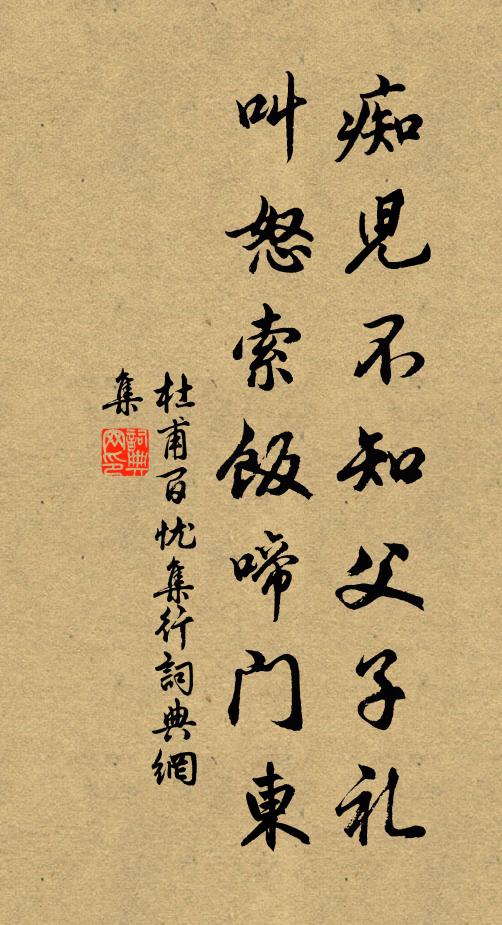 痴児不知父子礼
叫怒索飯啼门東
杜甫百忧集行詞典網
集
詞典网印